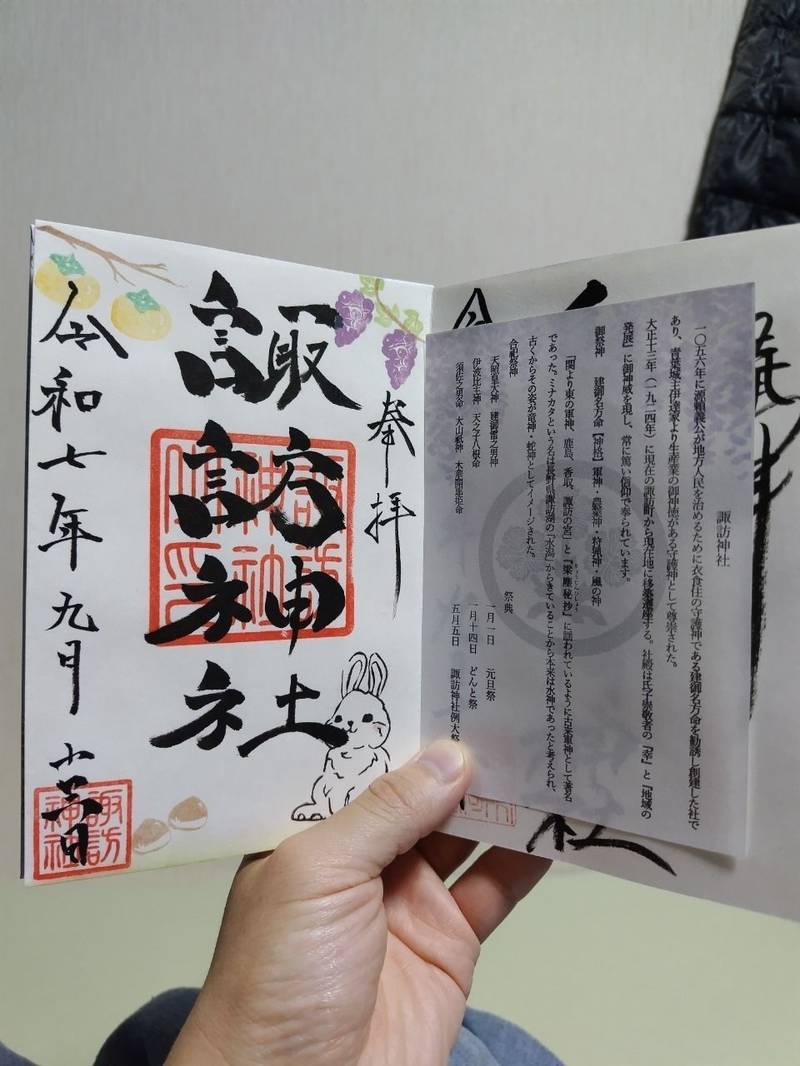 奉拝
諏訪神社
令和七年九月
日
諏訪
神社
諏訪神社
一〇五六年に源頼義公が地方人民を治めるために衣食住の守護神である建御名方命を勧誘し創建した社で
あり、青葉城主伊達家より生産業の御神徳がある守護神として尊崇された。
大正十三年（一九二四年）に現在の諏訪町から現在地に移築遷座する。社殿は氏子崇敬者の『幸』と『地域の
発展』に御神威を現し、常に篤い信仰で奉られています。
御祭神　建御名方命【神格】軍神・農業神・狩猟神・風の神
「関より東の軍神、鹿島、香取、諏訪の宮」と『梁塵秘抄』に謳われているように古来軍神として著名
であった。ミナカタという名は長野県諏訪湖の「水潟」からきていることから本来は水神であったと考えられ、
古くからその姿が竜神・蛇神としてイメージされた。
合祀祭神
天照皇大神　建御雷之男神
伊波比主神　天之子八根命
須佐之男命　大山祇神　木花開耶姫命
祭典
一月一日　元旦祭
一月十四日　どんと祭
五月五日　諏訪神社例大祭